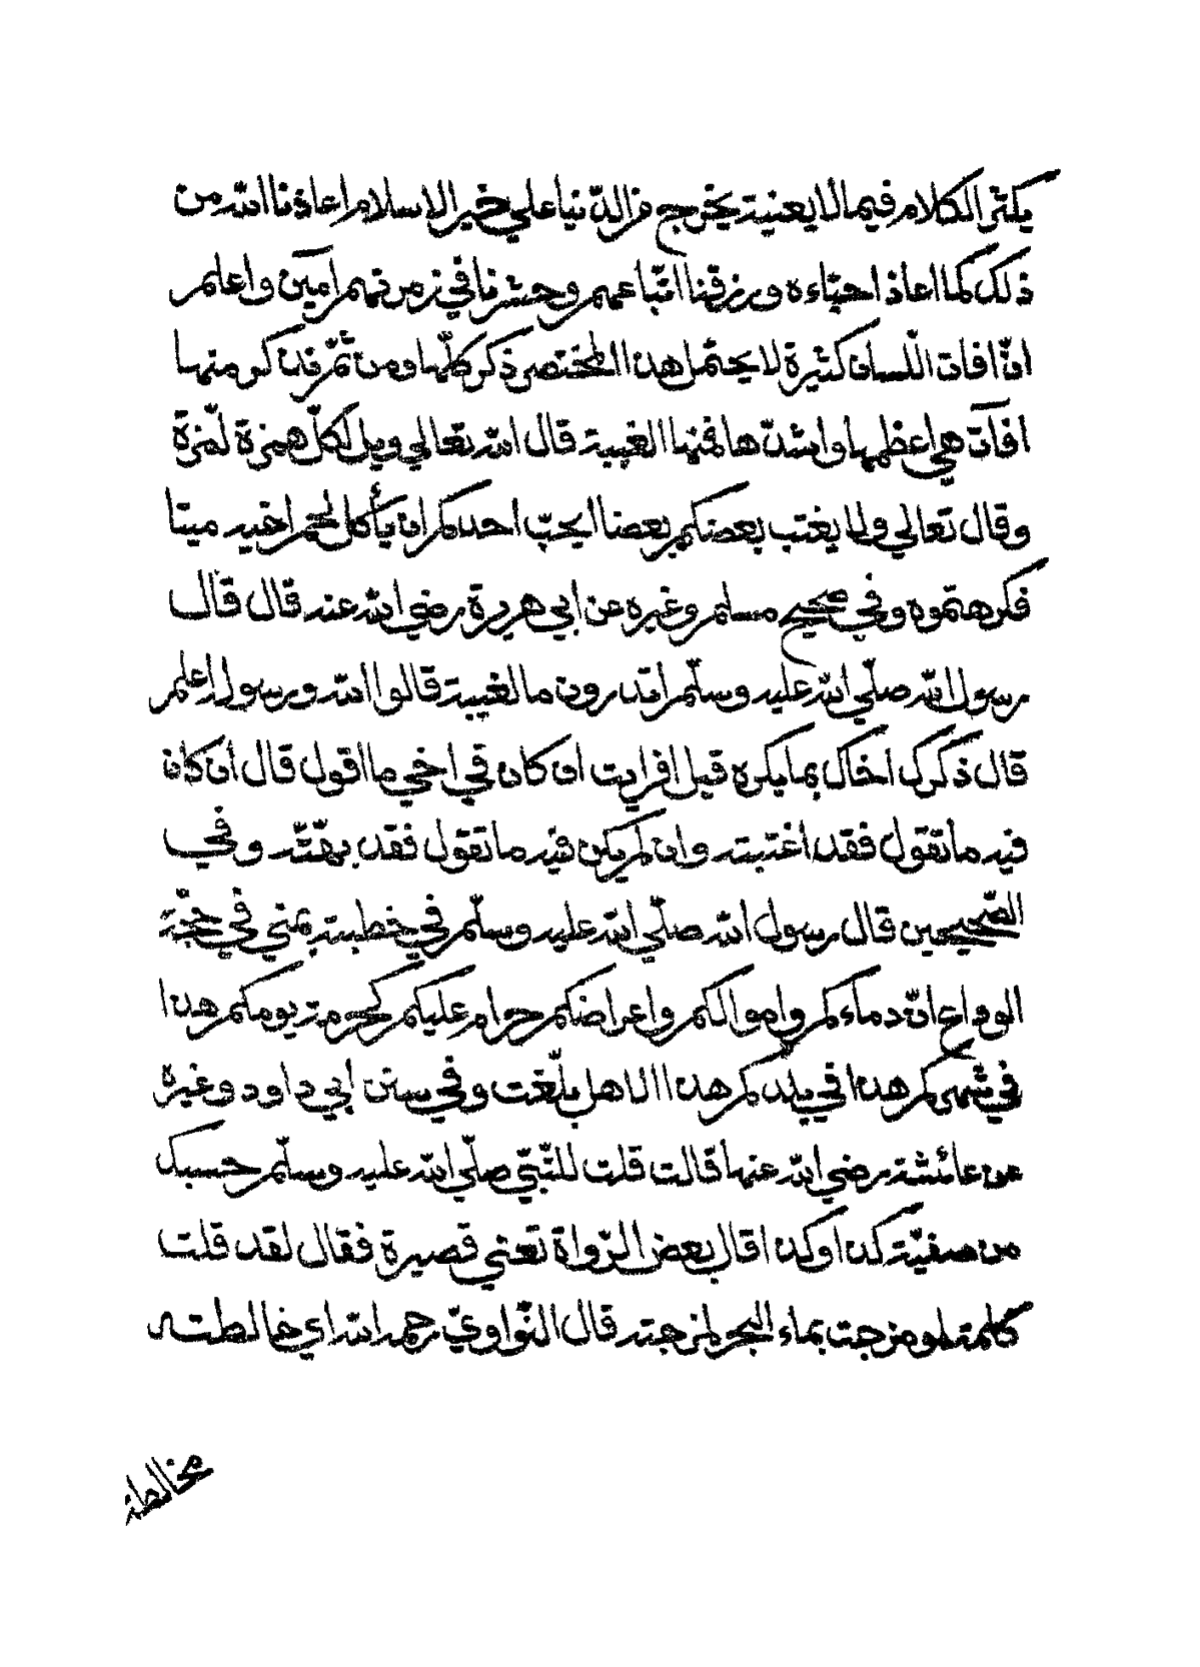 يكثر الكلام فيما لا يعنيه يخرج من الدّنيا علي خير الاسلام اعاذنا الله من
ذلك كما اعاذ احبّاءه ورزقنا اتّباعهم وحشرنا في زمرتهم آمين واعلم
انّ افات اللّسان كثيرة لا يحتمل هذا المختصر ذكر كلّها ومن ثمّ فلنذكر منها
افآت هي اعظمها واشدّها فمنها الغيبة قال الله تعالي ويل لكلّ همزة لّمزة
وقال تعالي ولا يغتب بعضكم بعضا ايحبّ احدكم ان يأكل لحم اخيه ميتا
فكرهتموه وفي صحيح مسلم وغيره عن ابي هريرة رضي الله عنه قال قال
رسول الله صلّي الله عليه وسلّم اتدرون ما الغيبة قالوا الله ورسوله اعلم
قال ذكرك اخاك بما يكره قيل افرايت ان كان في اخي ما اقول قال ان كان
فيه ما تقول فقد اغتبته وان لم يكن فيه ما تقول فقد بهتّه وفي
الصّحيحين قال رسول الله صلّي الله عليه وسلّم في خطبته بمني في حجّة
الوداع انّ دماءكم واموالكم واعراضكم حرام عليكم كحرمة يومكم هذا
في شهركم هذا في بلدكم هذا الا هل بلّغت وفي سنن ابي داود وغيره
عن عائشة رضي الله عنها قالت قلت للنّبيّ صلّي الله عليه وسلّم حسبك
من صفيّة كذا وكذا قال بعض الرّواة تعني قصيرة فقال لقد قلت
كلمة لو مزجت بماء البحر لمزجته قال النّواويّ رحمه الله اي خالطته
مخالطة